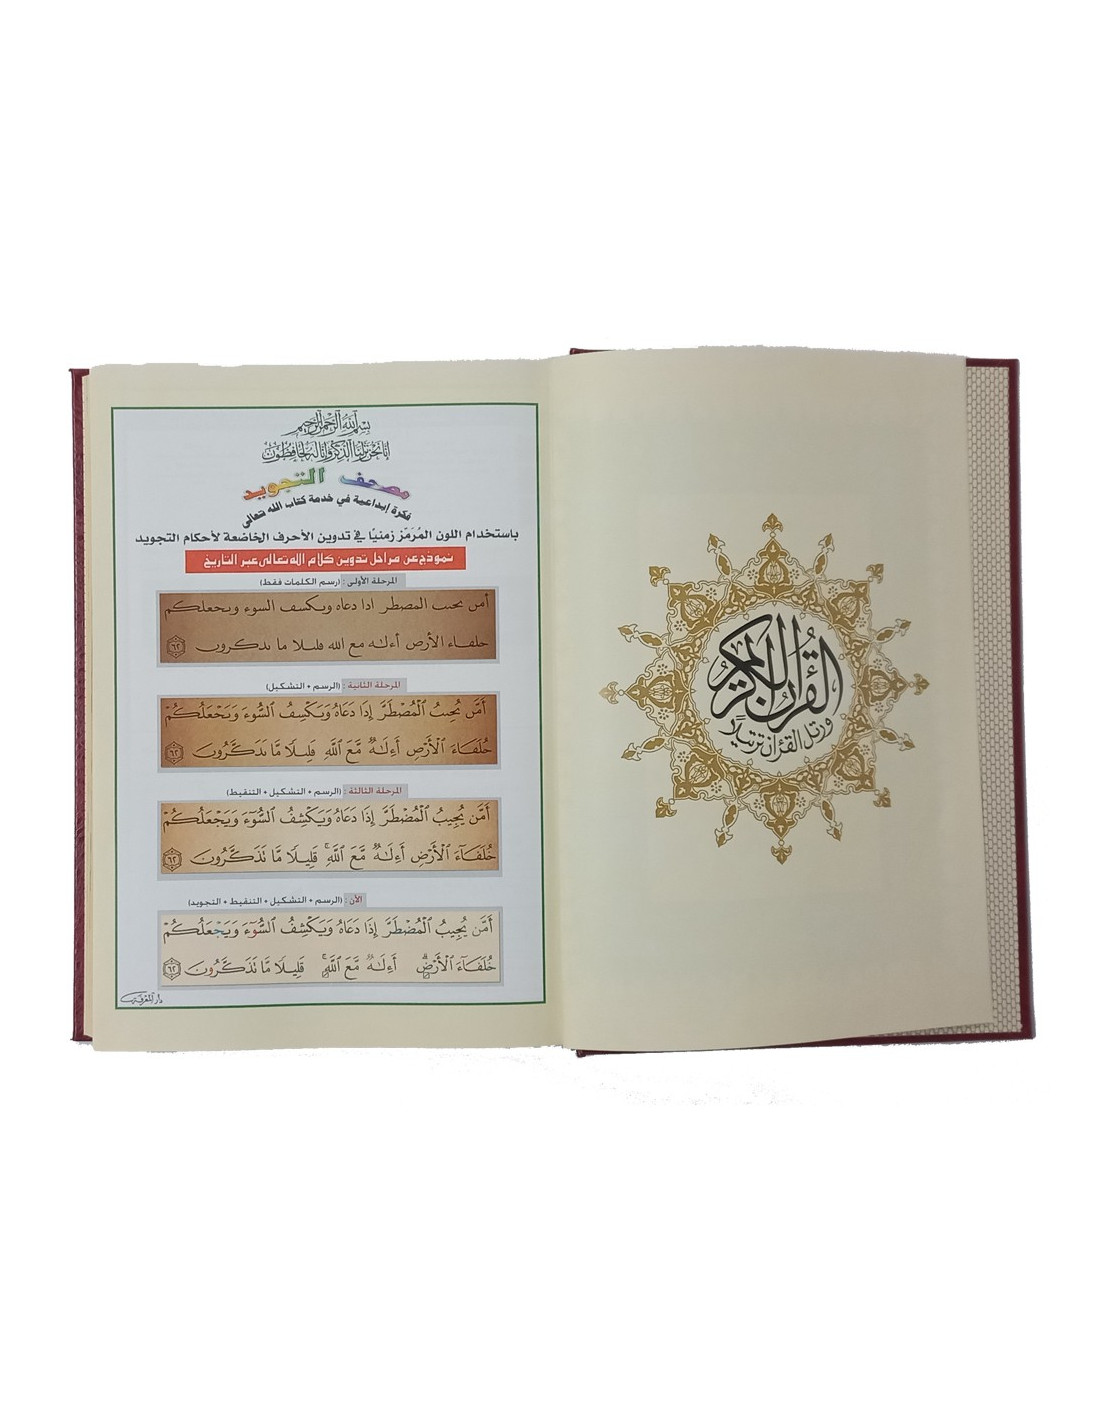 القرآن الكريم
ورتل القرآن ترتيلاً
بسم الله الرحمن الرحيم
إنا نحن نزلنا الذكر وإنا له لحافظون
مصحف التجويد
فكرة إبداعية في خدمة كتاب الله تعالى
باستخدام اللون المُرَمّز زمنيًا في تدوين الأحرف الخاضعة لأحكام التجويد
نموذج عن مراحل تدوين كلام الله تعالى عبر التاريخ
المرحلة الأولى : (رسم الكلمات فقط)
أمن يحىب المصطر اذا دعاه ويكسف السوء ويجعلكم
حلفاء الأرص أءله مع الله قليلا ما تدكرون ٦٢
المرحلة الثانية : (الرسم + التشكيل)
أَمَّن يُحِيبُ ٱلْمُصْطَرَّ إِذَا دَعَاهُ وَيَكْسِفُ ٱلسُّوٓءَ وَيَحْعَلُكُمْ
حُلَفَآءَ ٱلْأَرْصِ أَءِلَٰهٌ مَّعَ ٱللَّهِ قَلِيلًا مَّا تَدَكَّرُونَ ٦٢
المرحلة الثالثة : (الرسم + التشكيل + التنقيط)
أَمَّن يُجِيبُ ٱلْمُضْطَرَّ إِذَا دَعَاهُ وَيَكْشِفُ ٱلسُّوٓءَ وَيَجْعَلُكُمْ
خُلَفَآءَ ٱلْأَرْضِ أَءِلَٰهٌ مَّعَ ٱللَّهِ ۚ قَلِيلًا مَّا تَذَكَّرُونَ ٦٢
الآن : (الرسم + التشكيل + التنقيط + التجويد)
أَمَّن يُجِيبُ ٱلْمُضْطَرَّ إِذَا دَعَاهُ وَيَكْشِفُ ٱلسُّوٓءَ وَيَجْعَلُكُمْ
خُلَفَآءَ ٱلْأَرْضِ ۗ أَءِلَٰهٌ مَّعَ ٱللَّهِ ۚ قَلِيلًا مَّا تَذَكَّرُونَ ٦٢
دار المعرفة